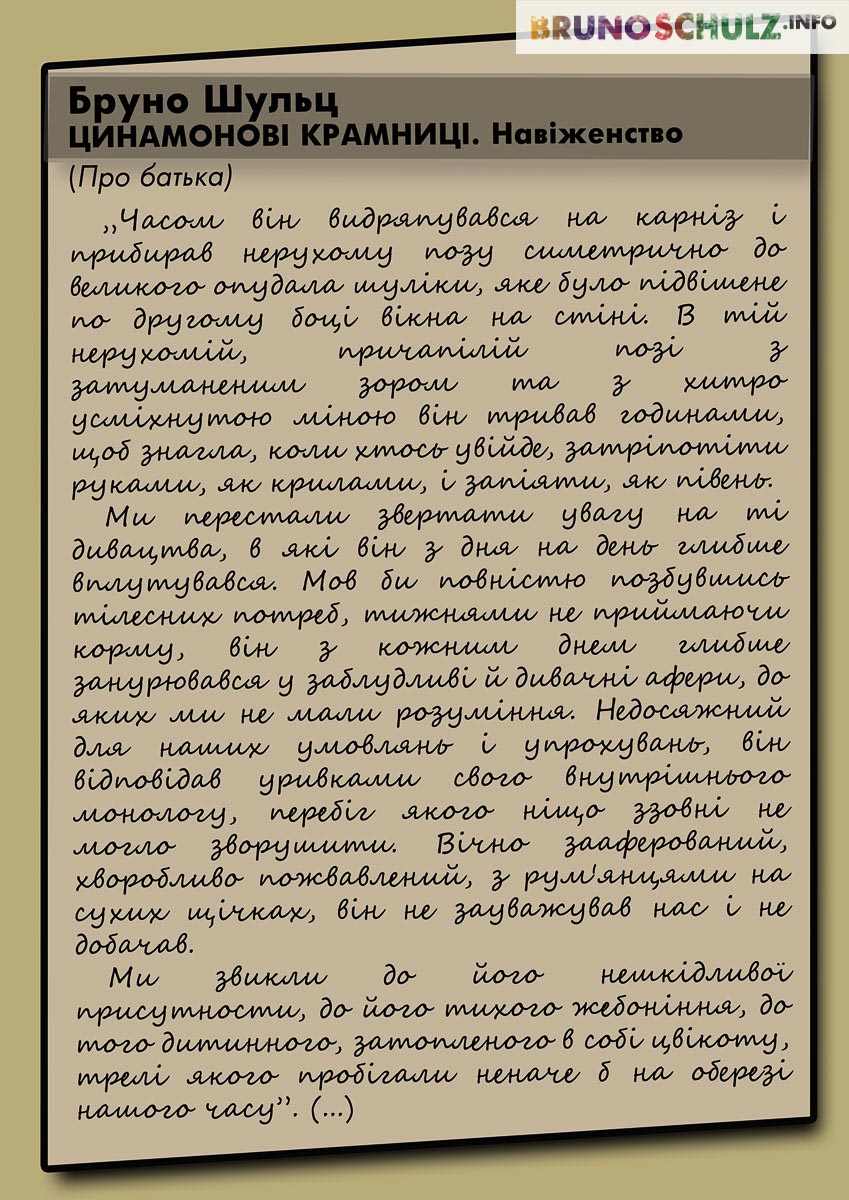 BRUNOSCHULZ.INFO
Бруно Шульц
ЦИНАМОНОВІ КРАМНИЦІ. Навіженство
(Про батька)
„Часом він видряпувався на карніз і
прибирав нерухому позу симетрично до
великого опудала шуліки, яке було підвішене
по другому боці вікна на стіні. В тій
нерухомій, причапілій позі з
затуманеним зором та з хитро
усміхнутою міною він тривав годинами,
щоб знагла, коли хтось увійде, затріпотіти
руками, як крилами, і запіяти, як півень.
Ми перестали звертати увагу на ті
дивацтва, в які він з дня на день глибше
вплутувався. Мов би повністю позбувшись
тілесних потреб, тижнями не приймаючи
корму, він з кожним днем глибше
занурювався у заблудливі й дивачні афери, до
яких ми не мали розуміння. Недосяжний
для наших умовлянь і упрохувань, він
відповідав уривками свого внутрішнього
монологу, перебіг якого ніщо ззовні не
могло зворушити. Вічно зааферований,
хворобливо пожвавлений, з рум'янцями на
сухих щічках, він не зауважував нас і не
добачав.
Ми звикли до його нешкідливої
присутности, до його тихого жебоніння, до
того дитинного, затопленого в собі цвікоту,
трелі якого пробігали неначе б на оберезі
нашого часу”. (...)